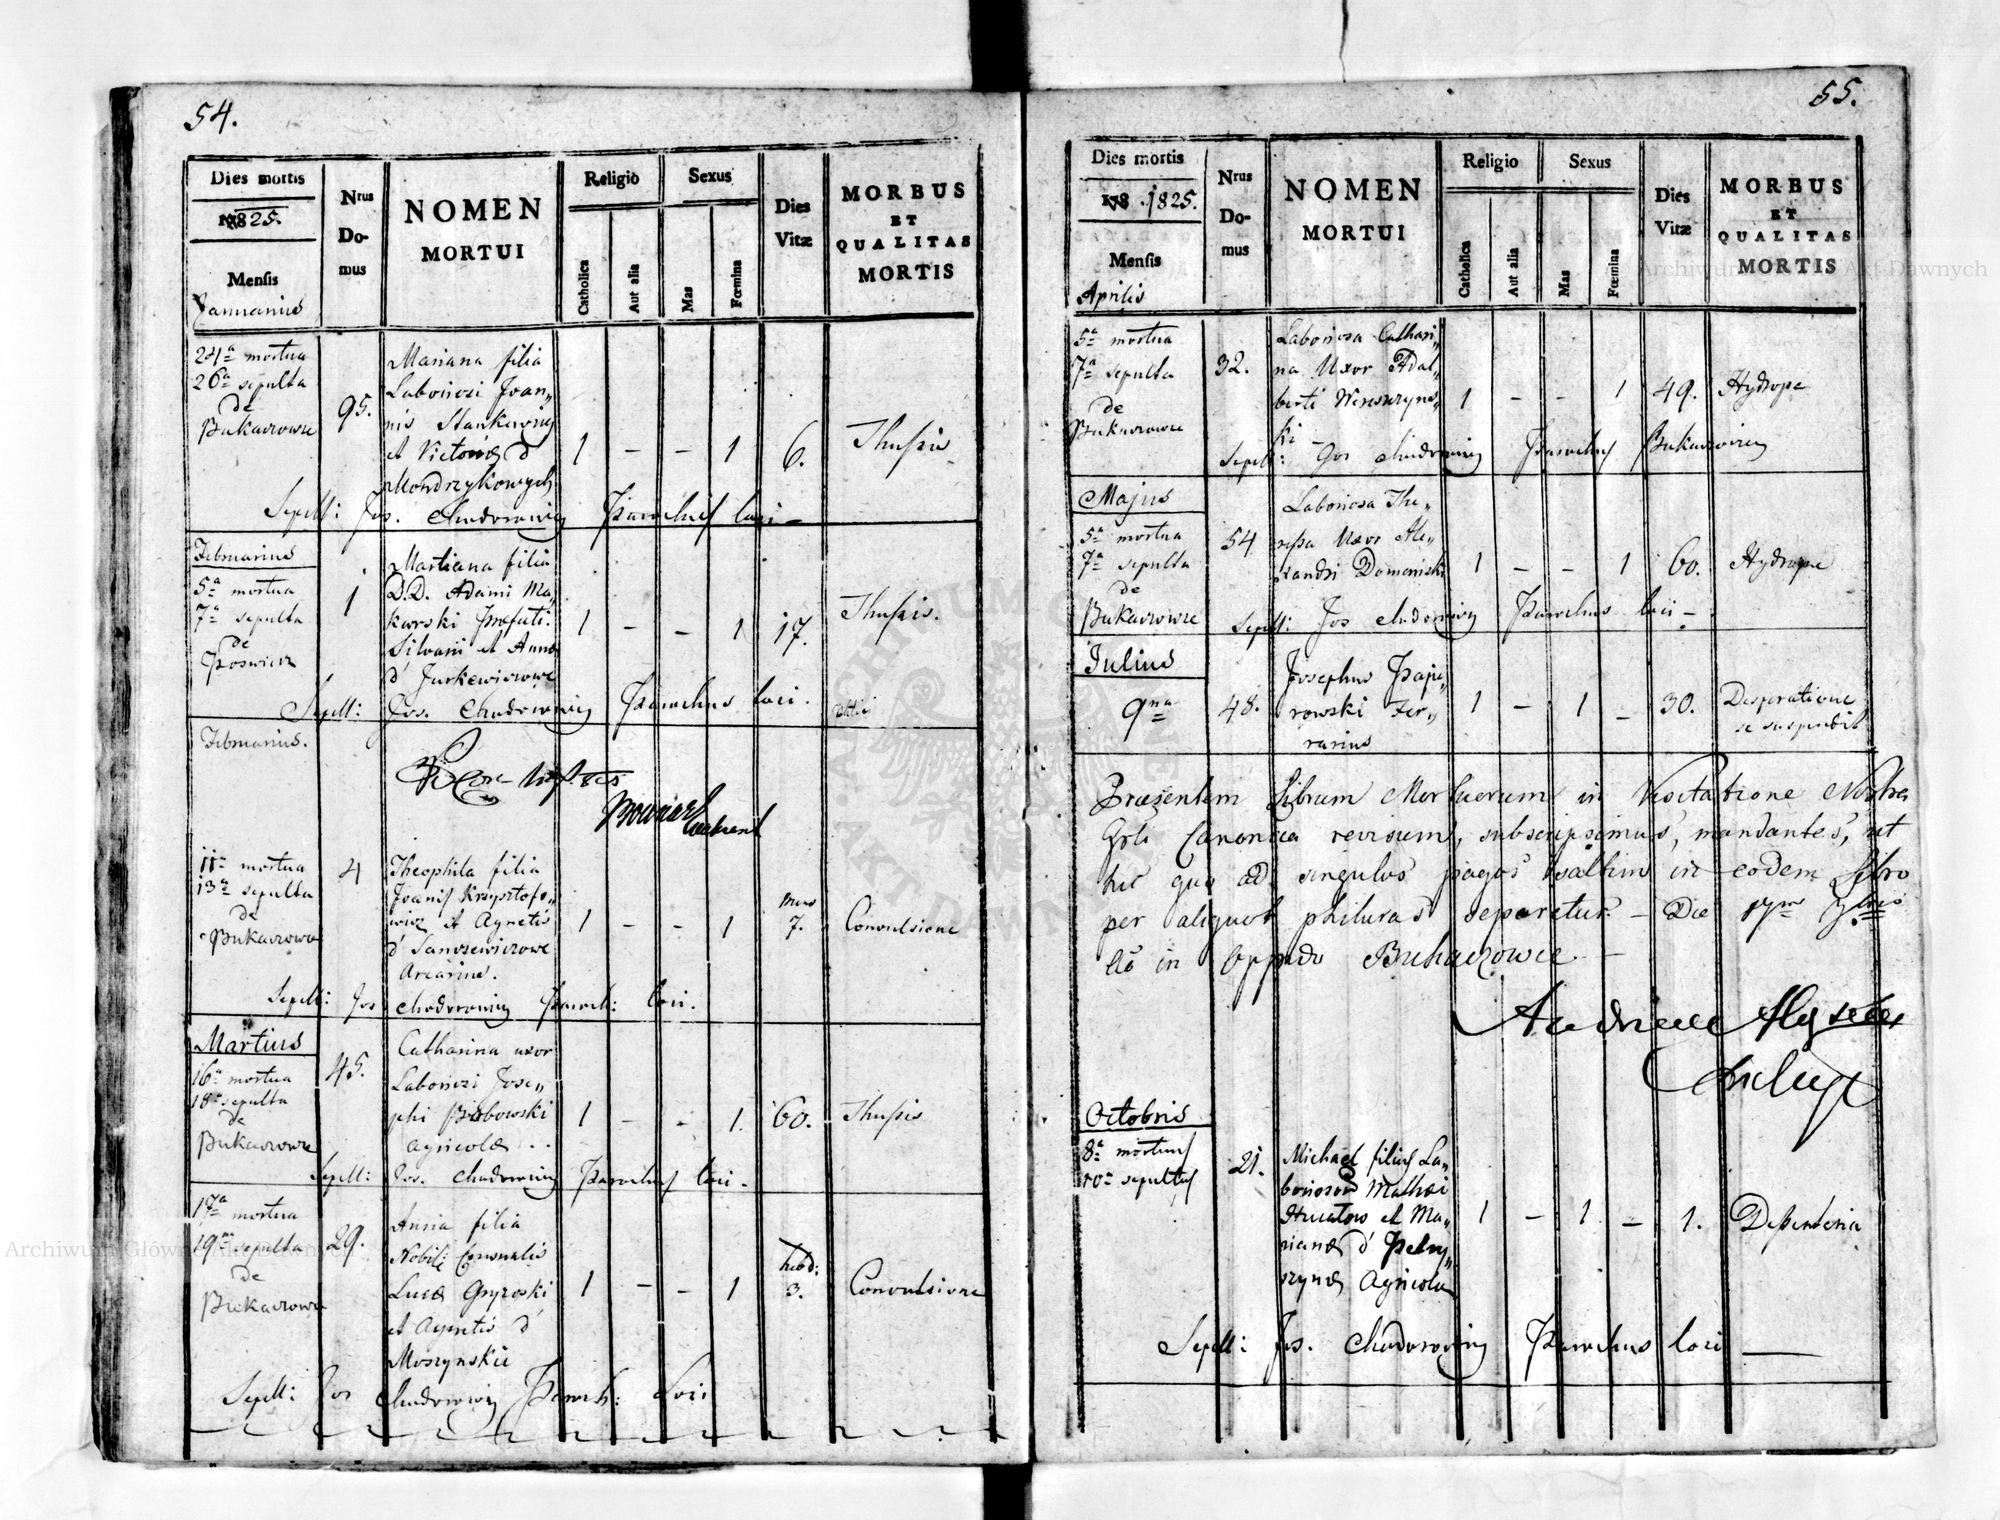 54.
Dies mortis
1825.
Mensis
Januarius
Nrus
Do-
mus
NOMEN
MORTUI
Religio
Catholica
Aut alia
Sexus
Mas
Fœmina
Dies
Vitæ
MORBUS
ET
QUALITAS
MORTIS
24a mortua
26a sepulta
de
Bukaczowce
95.
Mariana filia
Laboriosi Joan„
nis Stankiewicz
et Victoriæ d
Mondrzykowych
1 – – 1 6. Thussis
Sepell: Jos. Chodorowicz Parochus loci –
Februarius
5a mortua
7a sepulta
de
1
Martiana filia
D.D. Adami Ma„
karski Præfecti
Silvarii et Anna
d' Jurkiewiczowe
1 – – 1 17. Thussis.
Sepell: Jos. Chodorowicz Parochus loci.
Februarius.
11a mortua
13a sepulta
de
Bukaczowce
4
Theophila filia
Joanis Krzysztofo„
wicz et Agnetis
d' Janosewiczowe
1 – – 1 7. Convulsione
Sepell: Jos Chodorowicz Paroch: loci.
Martius
16a mortua
18a sepulta
de
Bukaczowce
45.
Catharina uxor
Laboriosi Jose„
phi Bobowski
agricolæ
1 – – 1. 60. Thussis
Sepell: Jos. Chodorowicz Parochus loci –
17a mortua
19a sepulta
de
Bukaczowce
29.
Anna filia
Nobili Consularis
Lucæ Gnyroski
et Agnetis d'
Moszynskie
1 – – 1 hebd: 3. Convulsione
Sepell: Jos Chodorowicz Paroch: Loci
55.
Dies mortis
178 . 1825.
Mensis
Aprilis
Nrus
Do-
mus
NOMEN
MORTUI
Religio
Catholica
Aut alia
Sexus
Mas
Fœmina
Dies
Vitæ
MORBUS
ET
QUALITAS
MORTIS
5a mortua
7a sepulta
de
Bukaczowce
32.
Laboriosa Cathari„
na Uxor Adal„
berti Wereszczyns„
ki –
1 – – 1 49. Hydrope
Sepell: Jos Chodorowicz Parochus Bukaczoviensis
Majus
5a mortua
7a sepulta
de
Bukaczowce
54
Laboriosa The„
ressa Uxor Ale„
xandri Domeniski
1 – – 1 60. Hydrope
Sepell: Jos Chodorowicz Parochus loci –
Julius
9na
48.
Josephus Papi„
rowski Fer„
rarius
1 – 1 – 30. Desperatione
se suspendit
Præsentem Librum Mortuorum in Visitatione Nostra
Grli Canonica revisum, subscripsimus, mandantes, ut
hic quo ad singulos pagos saltim in eodem Libro
per aliquot philuras separetur. – Die 17ma 7bris
in Oppido Bukaczowce –
Octobris
8a mortuus
10a sepultus
21.
Michael filius La„
boriosor Mathæi
Hucalow et Ma„
rianæ d' Petry„
szynæ Agricola
1 – 1 – 1. Dessenteria
Sepell: Jos. Chodorowicz Parochus loci
Archiwum Główne Akt Dawnych